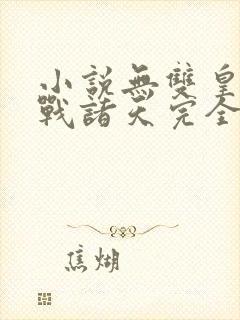 小説無雙皇
戰諸天完全
焦煳